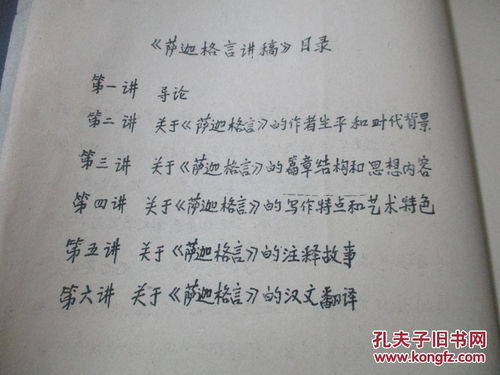 《萨迦格言讲稿》目录
第一讲 导论
第二讲 关于《萨迦格言》的作者生平和时代背景
第三讲 关于《萨迦格言》的篇章结构和思想内容
第四讲 关于《萨迦格言》的写作特点和艺术特色
第五讲 关于《萨迦格言》的注释故事
第六讲 关于《萨迦格言》的汉文翻译
孔夫子旧书网
www.kongfz.com